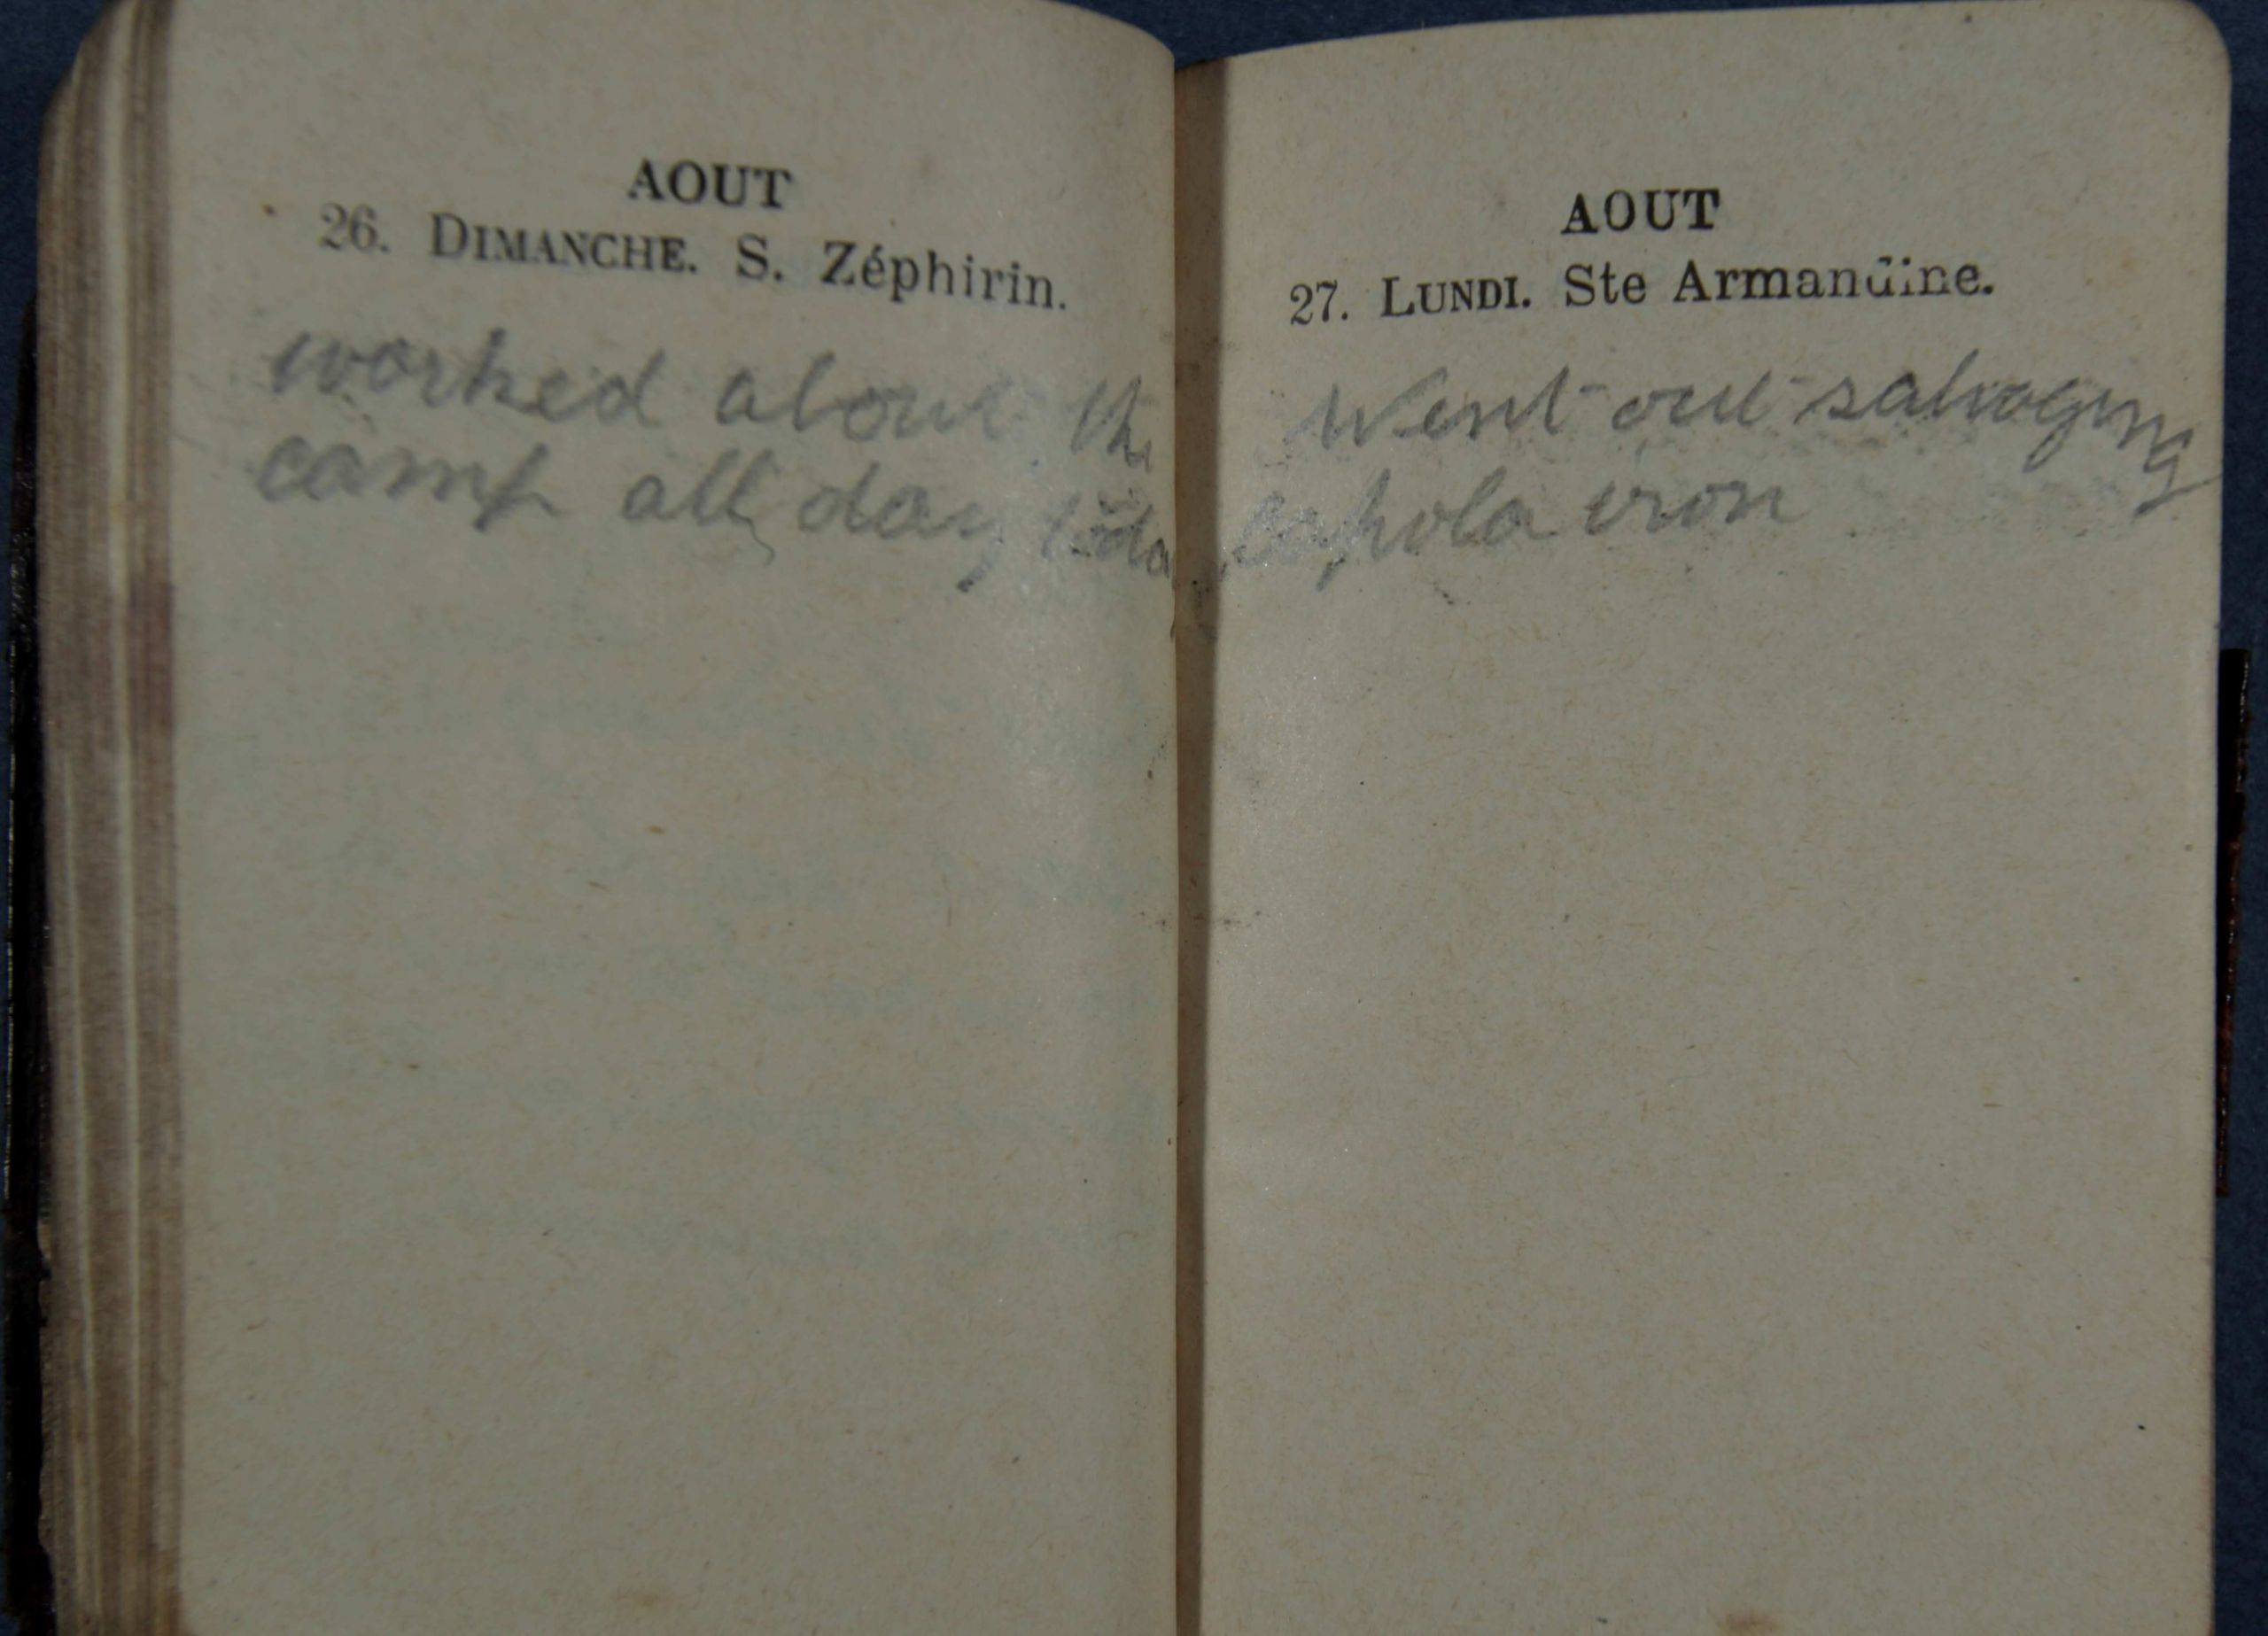 AOUT
26. DIMANCHE. S. Zéphirin.
worked about the
camp all day toda
AOUT
27. LUNDI. Ste Armandine.
Went out salvaging
cupola iron